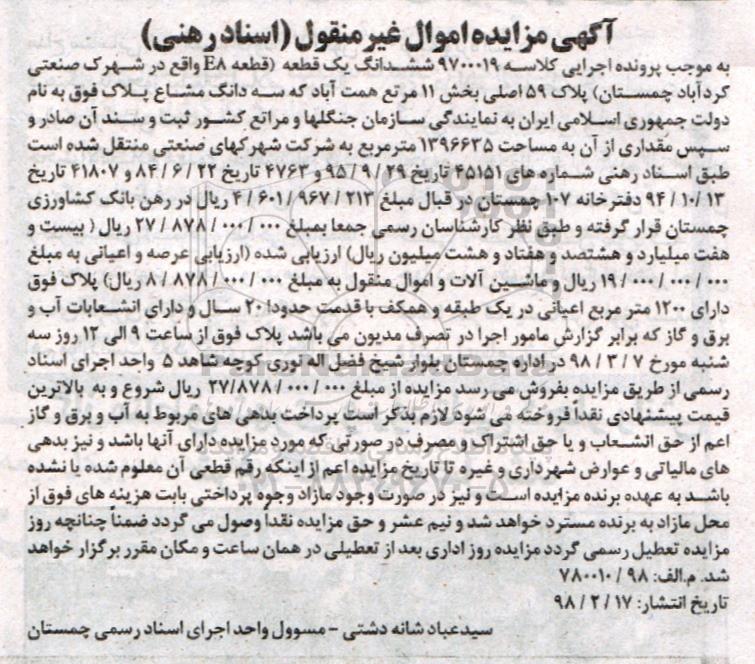 آگهی مزایده اموال غیر منقول (اسناد رهنی)
به موجب پرونده اجرایی کلاسه ۹۷۰۰۰۱۹ ششدانگ یک قطعه (قطعه E۸ واقع در شهرک صنعتی
کردآباد چمستان) پلاک ۵۹ اصلی بخش ۱۱ مرتع همت آباد که سه دانگ مشاع پلاک فوق به نام
دولت جمهوری اسلامی ایران به نمایندگی سازمان جنگلها و مراتع کشور ثبت و سند آن صادر و
سپس مقداری از آن به مساحت ۱۳۹۶۶۳۵ مترمربع به شرکت شهرکهای صنعتی منتقل شده است
طبق اسناد رهنی شماره های ۴۵۱۵۱ تاریخ ۲۹ / ۹ / ۹۵ و ۴۷۶۳ تاریخ ۲۲ / ۶ / ۸۴ و ۴۱۸۰۷ تاریخ
۱۳ / ۱۰ / ۹۴ دفترخانه ۱۰۷ چمستان در قبال مبلغ ۲۱۳ / ۹۶۷ / ۶۰۱ / ۴ ریال در رهن بانک کشاورزی
چمستان قرار گرفته و طبق نظر کارشناسان رسمی جمعا بمبلغ ۰۰۰ / ۰۰۰ / ۸۷۸ / ۲۷ ریال ( بیست و
هفت میلیارد و هشتصد و هفتاد و هشت میلیون ریال) ارزیابی شده (ارزیابی عرصه و اعیانی به مبلغ
۰۰۰ / ۰۰۰ / ۰۰۰ / ۱۹ ریال و ماشین آلات و اموال منقول به مبلغ ۰۰۰ / ۰۰۰ / ۸۷۸ / ۸ ریال) پلاک فوق
دارای ۱۲۰۰ متر مربع اعیانی در یک طبقه و همکف با قدمت حدودا ۲۰ سال و دارای انشعابات آب و
برق و گاز که برابر گزارش مامور اجرا در تصرف مدیون می باشد پلاک فوق از ساعت ۹ الی ۱۲ روز سه
شنبه مورخ ۷ / ۳ / ۹۸ در اداره چمستان بلوار شیخ فضل اله نوری کوچه شاهد ۵ واحد اجرای اسناد
رسمی از طریق مزایده بفروش می رسد مزایده از مبلغ ۰۰۰ / ۰۰۰ / ۲۷/۸۷۸ ریال شروع و به بالاترین
قیمت پیشنهادی نقداً فروخته می شود لازم بذکر است پرداخت بدهی های مربوط به آب و برق و گاز
اعم از حق انشعاب و یا حق اشتراک و مصرف در صورتی که مورد مزایده دارای آنها باشد و نیز بدهی
های مالیاتی و عوارض شهرداری و غیره تا تاریخ مزایده اعم از اینکه رقم قطعی آن معلوم شده یا نشده
باشد به عهده برنده مزایده است و نیز در صورت وجود مازاد وجوه پرداختی بابت هزینه های فوق از
محل مازاد به برنده مسترد خواهد شد و نیم عشر و حق مزایده نقداً وصول می گردد ضمناً چنانچه روز
مزایده تعطیل رسمی گردد مزایده روز اداری بعد از تعطیلی در همان ساعت و مکان مقرر برگزار خواهد
شد. م.الف: ۹۸ / ۷۸۰۰۱۰
تاریخ انتشار: ۱۷ / ۲ / ۹۸
سیدعباد شانه دشتی - مسوول واحد اجرای اسناد رسمی چمستان